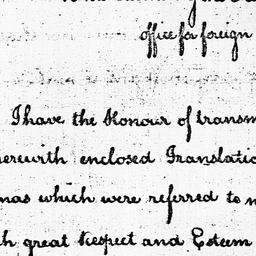 office for foreign
I have the Honour of transm
herewith enclosed Translatio
mas which were referred to m
th great Respect and Esteem